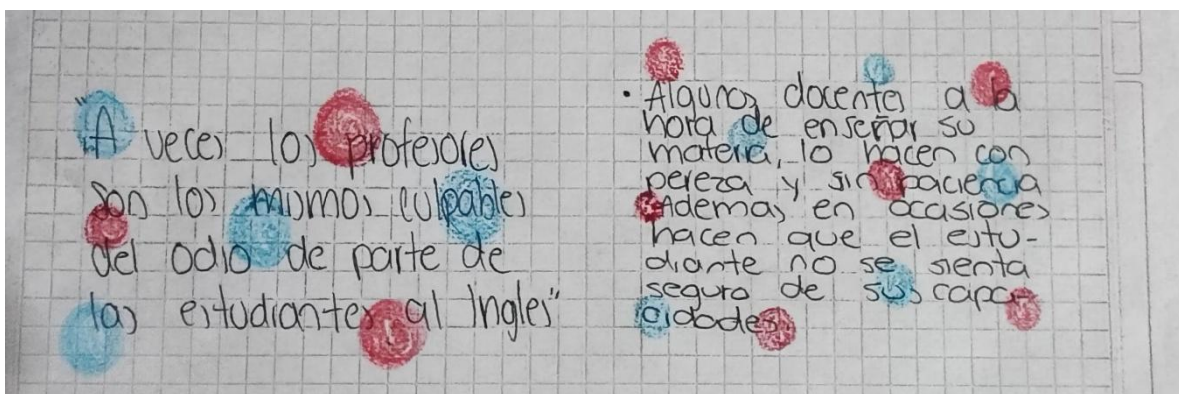 "A veces los profesores
son los mismos culpables
del odio de parte de
las estudiantes al Ingles"
• Algunos docentes a la
hora de enseñar su
materia, lo hacen con
pereza y sin paciencia
Ademas en ocasiones
hacen que el estu-
diante no se sienta
seguro de sus capa-
cidades.